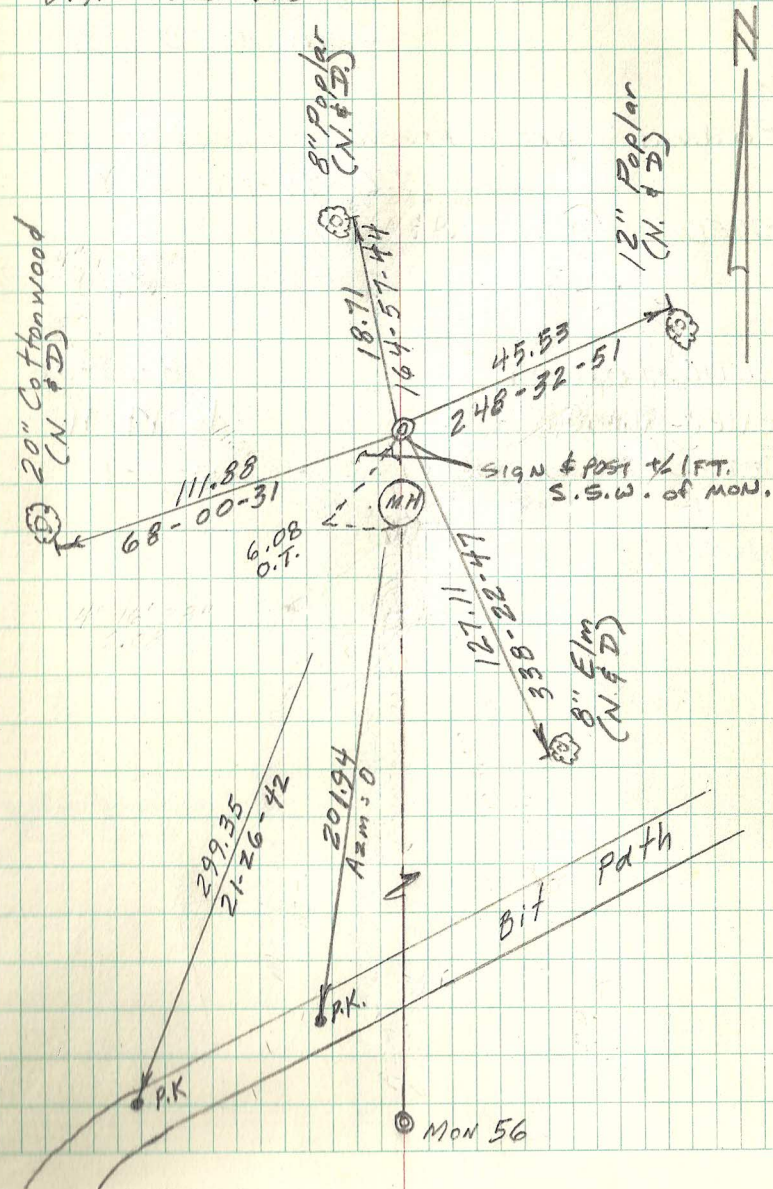 N
8" Poplar
(N. & D.)
12" Poplar
(N. & D)
20" Cottonwood
(N. & D)
18.71
164-57-44
45.53
248-32-51
111.88
68-00-31
SIGN & POST +/- 1 FT.
S.S.W. of MON.
MH
6.08
O.T.
127.11
338-22-47
8" Elm
(N. & D)
299.35
21-26-42
201.94
Azm = 0
Bit Path
P.K.
P.K
MON 56